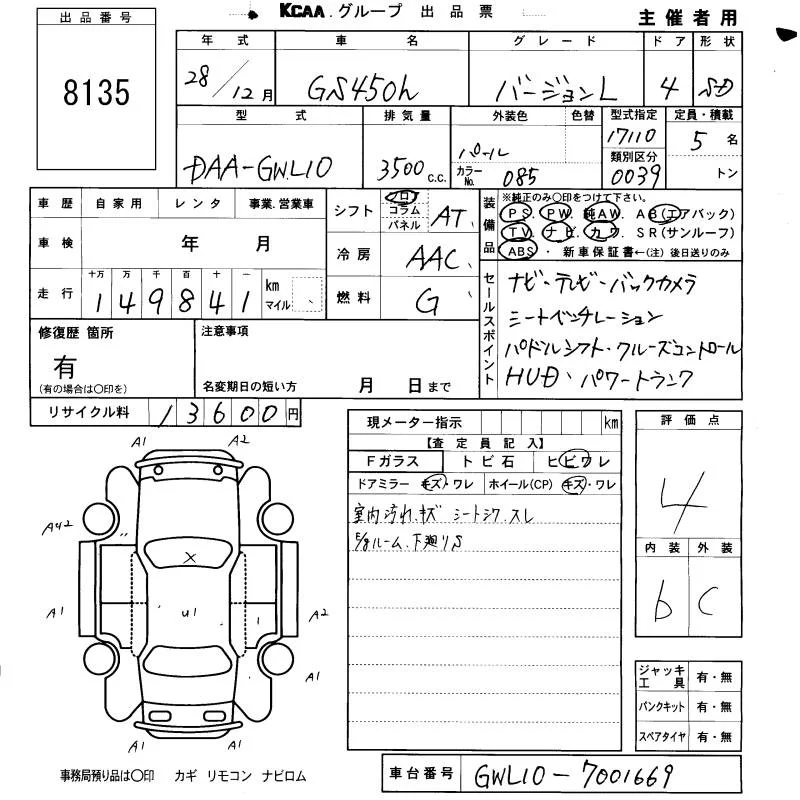 KCAA.グループ 出品票
主催者用
出品番号
8135
年式 車名 グレード ドア 形状
28/12月 GS450h バージョンL 4 SD
型式 排気量 外装色 色替 型式指定 定員・積載
DAA-GWL10 3500 c.c. パール 17110 5名
カラーNo. 085 類別区分 0039 トン
車歴 自家用 レンタ 事業.営業車
シフト フロア コラム パネル AT
装備品 ※純正のみ○印をつけて下さい。
PS. PW. 純AW. AB(エアバック)
TV. ナビ. カワ. SR(サンルーフ)
ABS・ 新車保証書←(注)後日送りのみ
車検 年 月
冷房 AAC
走行 十万 万 千 百 十 一
149841 km マイル
燃料 G
セールスポイント
ナビ・テレビ・バックカメラ
シートベンチレーション
パドルシフト・クルーズコントロール
HUD、パワートランク
修復歴 箇所
有
(有の場合は○印を)
注意事項
名変期日の短い方 月 日まで
リサイクル料 13600円
現メーター指示 km
【査定員記入】
Fガラス トビ石 ヒビワレ
ドアミラー キズ・ワレ ホイール(CP) キズ・ワレ
室内汚れ.キズ シートシワ.スレ
E/gルーム.下廻りS
評価点
4
内装 外装
b C
A1 A2
A42
X
A1 U1 1 A2
A1
A1 A1
ジャッキ工具 有・無
パンクキット 有・無
スペアタイヤ 有・無
事務局預り品は○印 カギ リモコン ナビロム
車台番号 GWL10-7001669